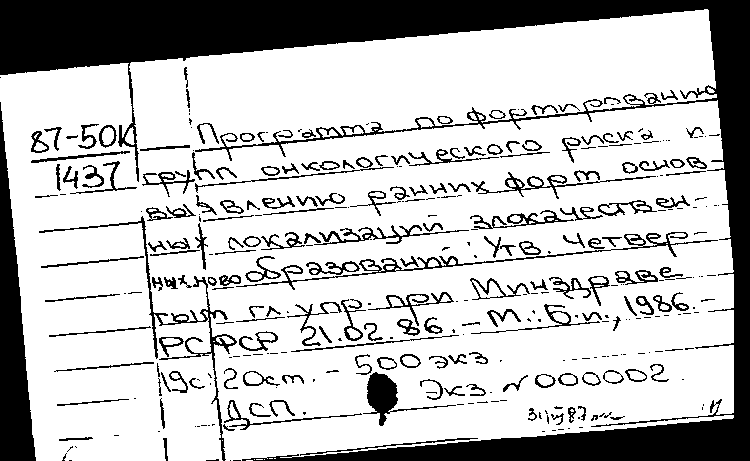 87-50К
1437
Программа по формированию
групп онкологического риска и
выявлению ранних форм основ-
ных локализаций злокачествен-
ных новообразований: Утв. Четвер-
тым гл. упр. при Минздраве
РСФСР 21.02.86. - М.: Б.и., 1986. -
19с; 20см. - 500 экз.
ДСП. Экз. №000002.